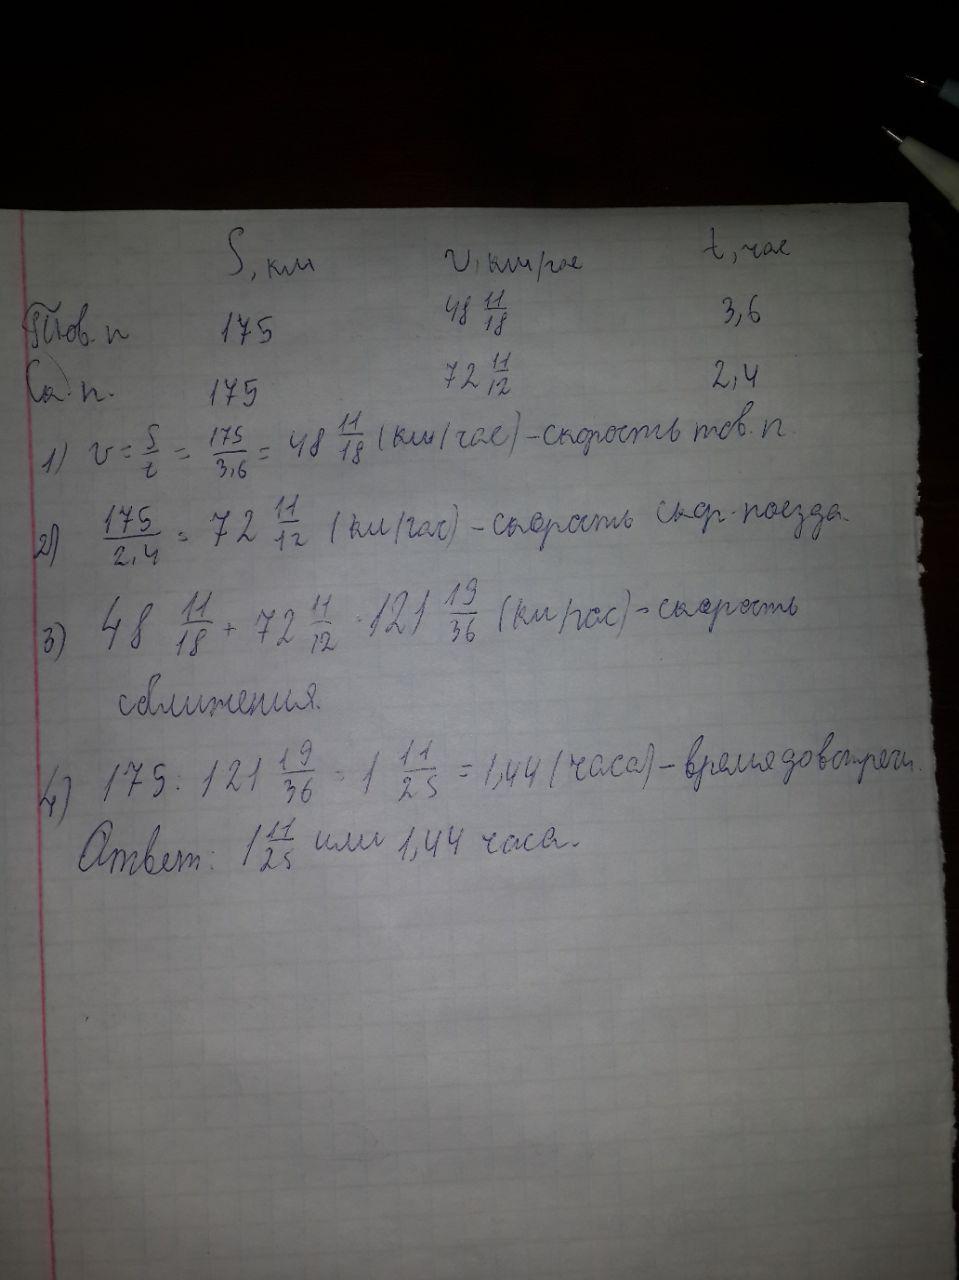 S, км v, км/час t, час
Тов. п 175 48 11/18 3,6
п. 175 72 11/12 2,4
1) v = S/t = 175/3,6 = 48 11/18 (км/час) - скорость тов. п.
2) 175/2,4 = 72 11/12 (км/час) - скорость скор. поезда
3) 48 11/18 + 72 11/12 = 121 19/36 (км/час) - скорость
сближения.
4) 175 : 121 19/36 = 1 11/25 = 1,44 (часа) - время до встречи.
Ответ: 1 11/25 или 1,44 часа.